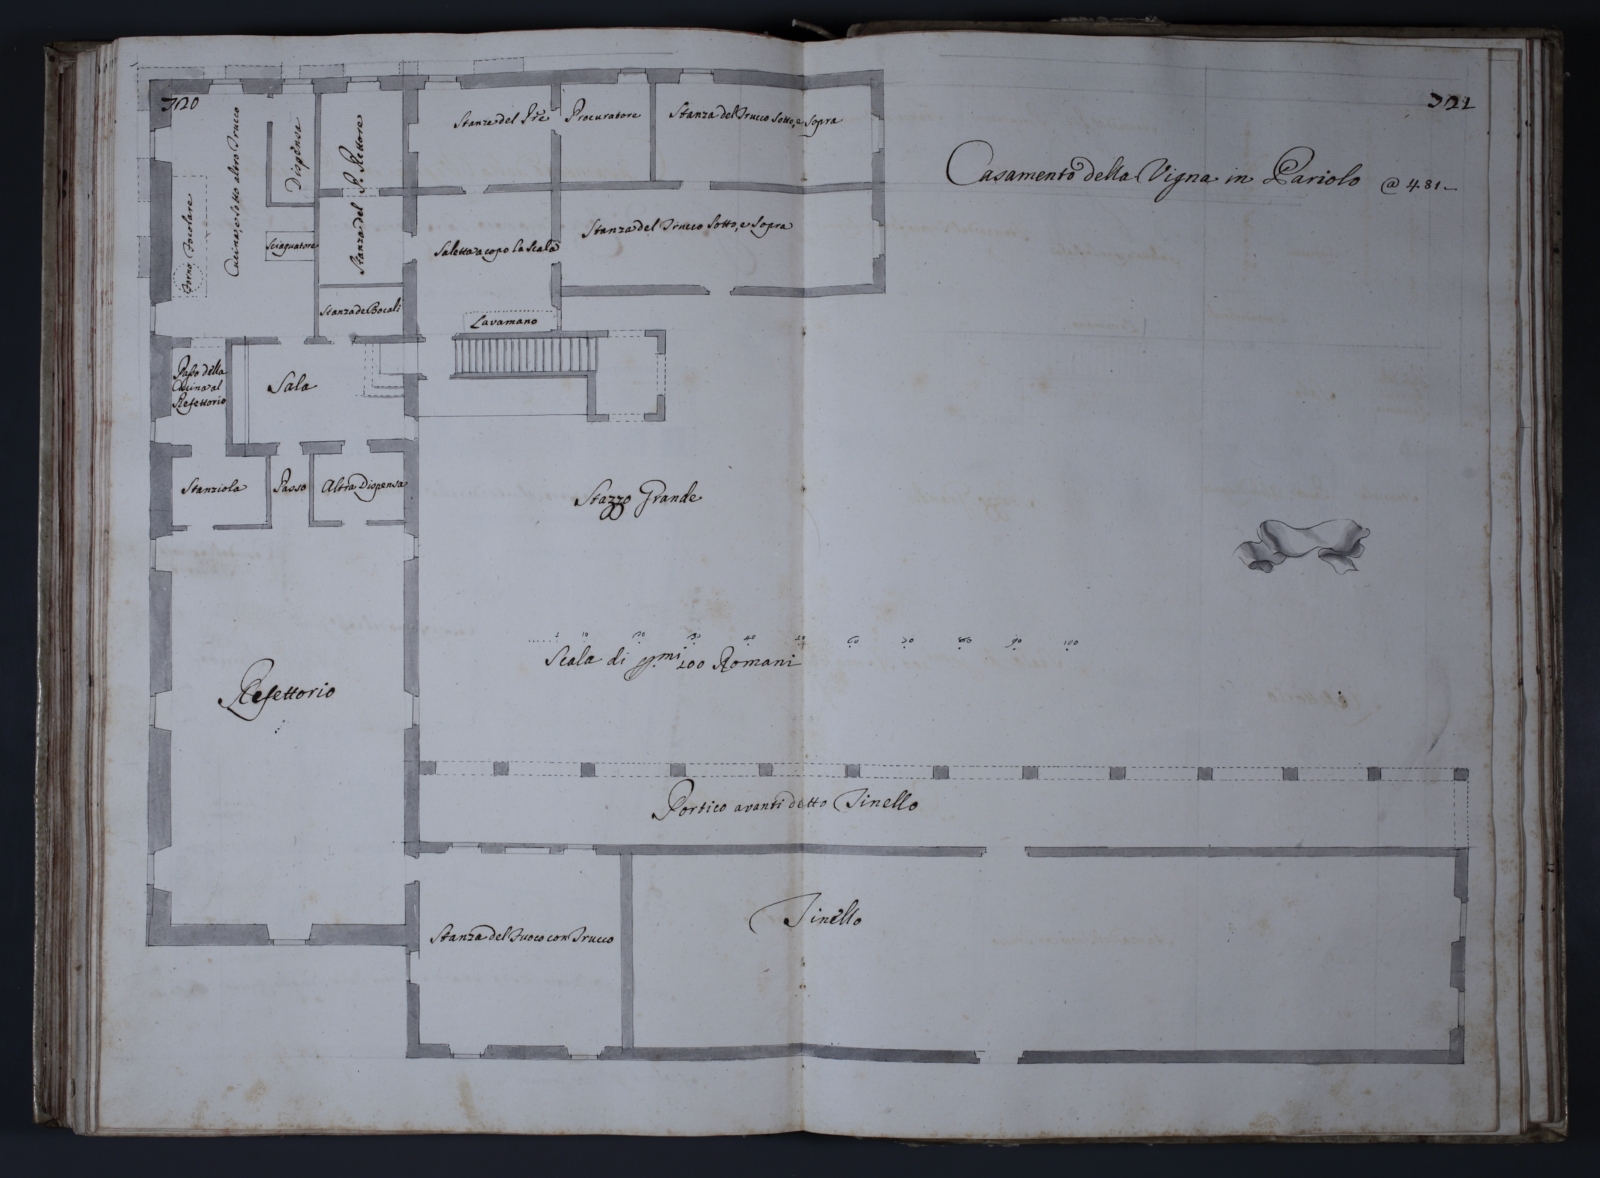 320
321
Casamento della Vigna in Pariolo @ 481
Cucina, e sotto altro Trucco
Dispensa
Forno, Focolare
Sciaquatore
Stanza del P. Rettore
Stanza de Bocali
Stanza del Pre Procuratore
Stanza del Trucco sotto, e sopra
Saletta a copo la scala
Stanza del Trucco sotto, e sopra
Lavamano
Passo della
Cucina al
Refettorio
Sala
Stanziola
Passo
Altra Dispensa
Stazzo Grande
10 20 30 40 50 60 70 80 90 100
Scala di pmi 100 Romani
Refettorio
Portico avanti detto Tinello
Stanza del Fuoco con Trucco
Tinello